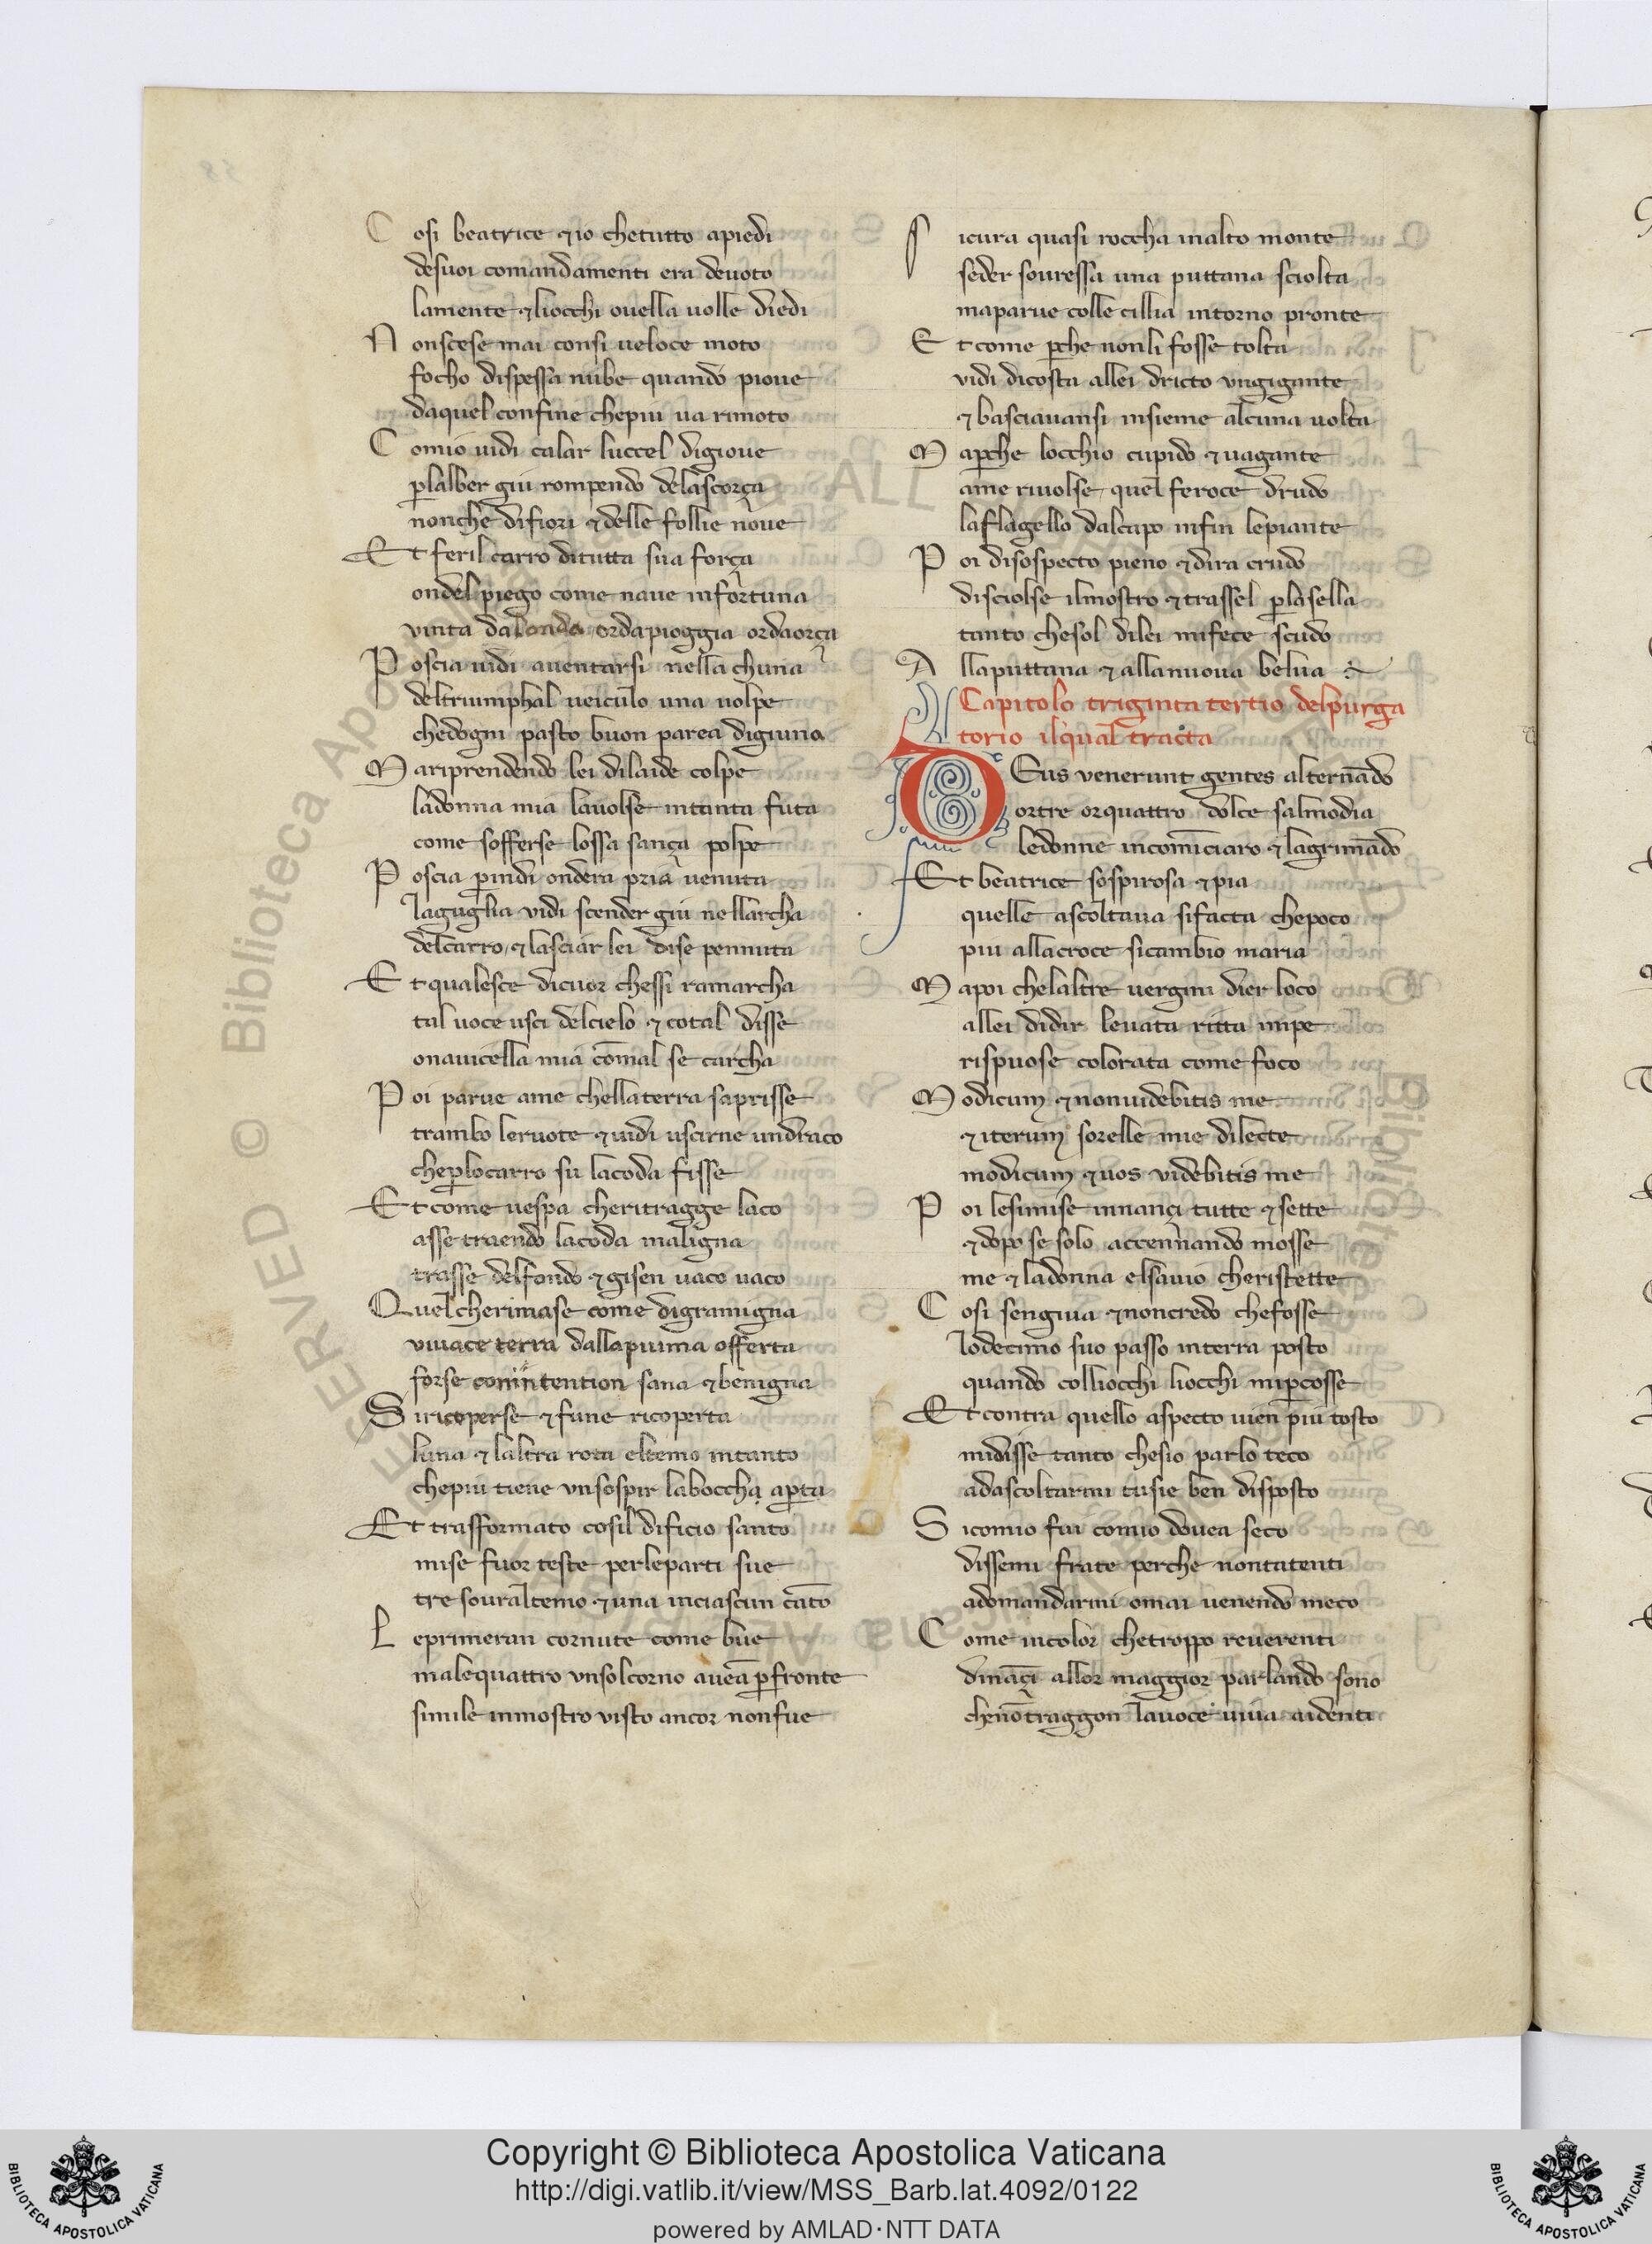 Cosi beatrice ⁊ io chetutto apiedi
desuoi comandamenti era deuoto
lamente ⁊ liocchi ouella uolle diedi
Nonscese mai consi ueloce moto
focho dispessa nube quando pioue
daquel confine chepiu ua rimoto
Comio uidi calar luccel digioue
ꝑlalber giu rompendo delascorça
nonche difiori ⁊ delle follie noue
Et feril carro ditutta sua força
ondel piego come naue infortuna
vinta dalonda ordapioggia ordaorça
Poscia uidi auentarsi nella chuna
deltriumphal ueiculo una uolpe
chedogni pasto buon parea digiuna
Mariprendendo lei dilaide colpe
ladonna mia lauolse intanta futa
come sofferse lossa sança polpe
Poscia ꝑindi ondera pria uenuta
laguglia vidi scender giu nellarcha
delcarro ⁊ lasciar lei dise pennuta
Et qualesce dicuor chessi ramarcha
tal uoce usci delcielo ⁊ cotal disse
onauicella mia com̄al se carcha
Poi parue ame chellaterra saprisse
trambo leruote ⁊ uidi uscirne undraco
cheꝑlocarro su lacoda fisse
Et come uespa cheritragge laco
asse traendo lacoda maligna
trasse delfondo ⁊ gisen uaco uaco
Quel cherimase come digramigna
viuace terra dallapiuma offerta
forse conintention sana ⁊ benigna
Siricoperse ⁊ fune ricoperta
luna ⁊ laltra rota eltemo intanto
chepiu tiene vnsospir laboccha aꝑta
Et trasformato cosil dificio santo
mise fuor teste perleparti sue
tre souraltemo ⁊ una inciascun cāto
Leprimeran cornute come bue
malequattro vnsolcorno aueā ꝑfronte
simile inmostro visto ancor nonfue
Sicura quasi roccha inalto monte
seder souressa una puttana sciolta
maparue colle cillia intorno pronte
Et come ꝑche nonli fosse tolta
vidi dicosta allei dricto vngigante
⁊ basciauansi insieme alcuna uolta
Maꝑche locchio cupido ⁊ uagante
ame riuolse quel feroce drudo
laflagello dalcapo infin lepiante
Poi disospecto pieno ⁊ dira crudo
disciolse ilmostro ⁊ trassel ꝑlasella
tanto chesol dilei mifece scudo
Allaputtana ⁊ allanuoua belua
Capitolo triginta tertio delpurga
torio ilqual tracta
DEus venerunt gentes alternādo
ortre orquattro dolce salmodia
ledonne incomīciaro ⁊ lagrimādo
Et beatrice sospirosa ⁊ pia
quelle ascoltaua sifacta chepoco
piu allacroce sicambio maria
Mapoi chelaltre uergini dier loco
allei didir leuata ritta inpe
rispuose colorata come foco
Modicum ⁊ nonuidebitis me
⁊ iterum sorelle mie dilecte
modicum ⁊ uos videbitis me
Poi lesimise innançi tutte ⁊ sette
⁊ dopo se solo accennando mosse
me ⁊ ladonna elsauio cheristette
Cosi sengiua ⁊ noncredo chefosse
lodecimo suo passo interra posto
quando colliocchi liocchi miꝑcosse
Et contra quello aspecto uien piu tosto
midisse tanto chesio parlo teco
adascoltarmi tusie ben disposto
Sicomio fui comio douea seco
dissemi frate perche nontatenti
adomandarmi omai uenendo meco
Come incolor chetroppo reuerenti
dināçi allor maggior parlando sono
chenōtraggon lauoce uiua aidenti
Copyright © Biblioteca Apostolica Vaticana
http://digi.vatlib.it/view/MSS_Barb.lat.4092/0122
powered by AMLAD·NTT DATA
BIBLIOTECA APOSTOLICA VATICANA
BIBLIOTECA APOSTOLICA VATICANA